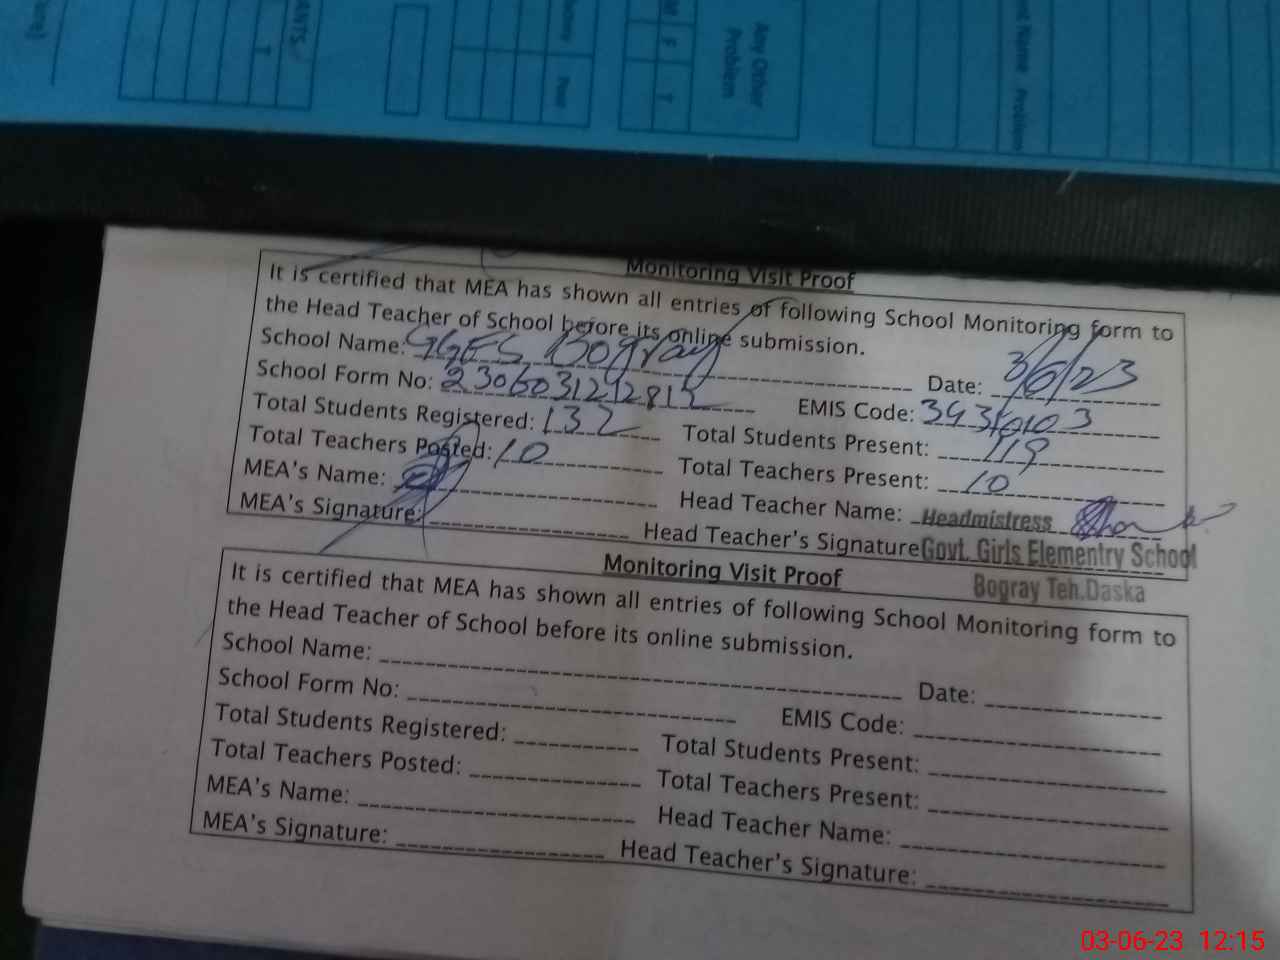 ANTS
T
F
T
Any Other
Problem
Name Problem
Monitoring Visit Proof
It is certified that MEA has shown all entries of following School Monitoring form to
the Head Teacher of School before its online submission.
School Name: GGES Bogray Date: 3/6/23
School Form No: EMIS Code:
Total Students Registered: 132 Total Students Present: 119
Total Teachers Posted: 10 Total Teachers Present: 10
MEA's Name: Head Teacher Name: Headmistress
MEA's Signature: Head Teacher's Signature Govt. Girls Elementry School
Bogray Teh.Daska
Monitoring Visit Proof
It is certified that MEA has shown all entries of following School Monitoring form to
the Head Teacher of School before its online submission.
School Name: Date:
School Form No: EMIS Code:
Total Students Registered: Total Students Present:
Total Teachers Posted: Total Teachers Present:
MEA's Name: Head Teacher Name:
MEA's Signature: Head Teacher's Signature:
03-06-23 12:15